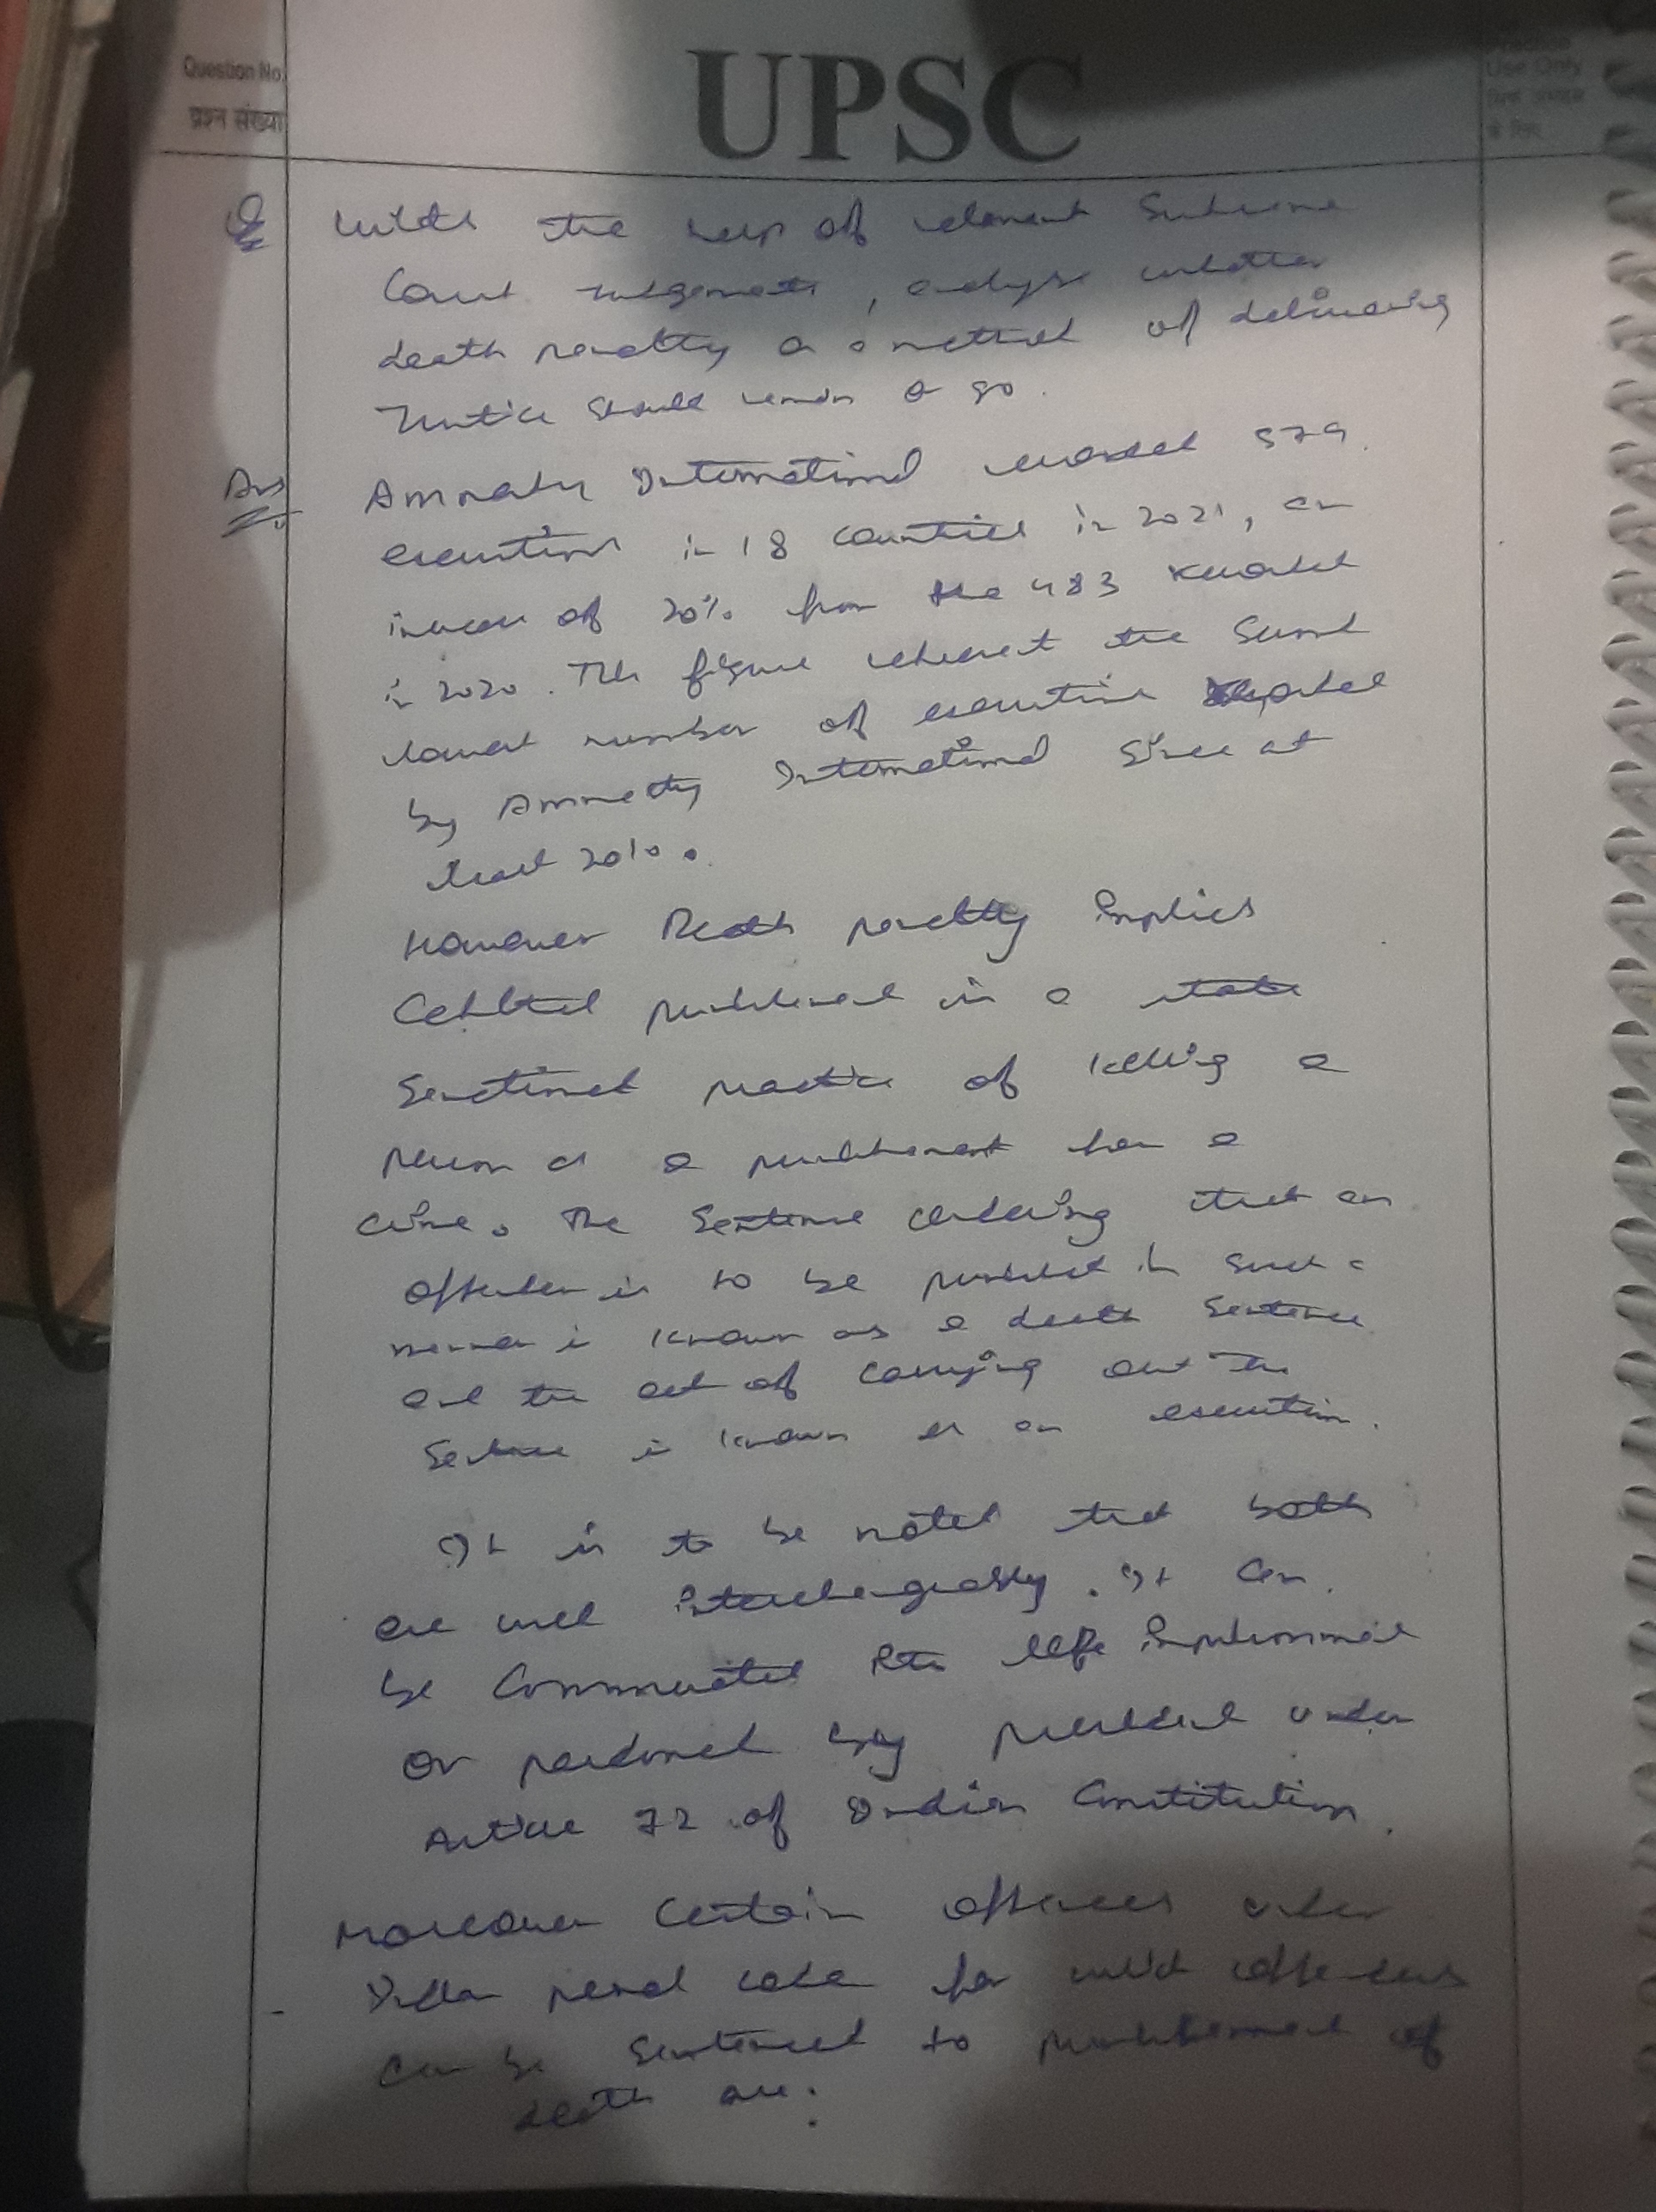 Question No.
प्रश्न संख्या
UPSC
Use Only
Q With the help of relevant Supreme
Court judgements, analyse whether
death penalty as a method of delivering
Justice should remain or go.
Ans Amnesty International recorded 579
executions in 18 countries in 2021, an
increase of 20% from the 483 recorded
in 2020. This figure represent the second
lowest number of executions reported
by Amnesty International since at
least 2010.
However Death penalty implies
punishment is a state
Sanctioned practice of killing a
person as a punishment for a
crime. The Sentence ordering that an
offender is to be punished in such a
manner is known as a death Sentence
and the act of carrying out the
Sentence is known as an execution.
It is to be noted that both
are used interchangeably. It can
be Commuted into life imprisonment
or pardoned by president under
Article 72 of Indian Constitution.
Moreover Certain offences under
Indian penal code for which offenders
can be Sentenced to punishment of
death are: